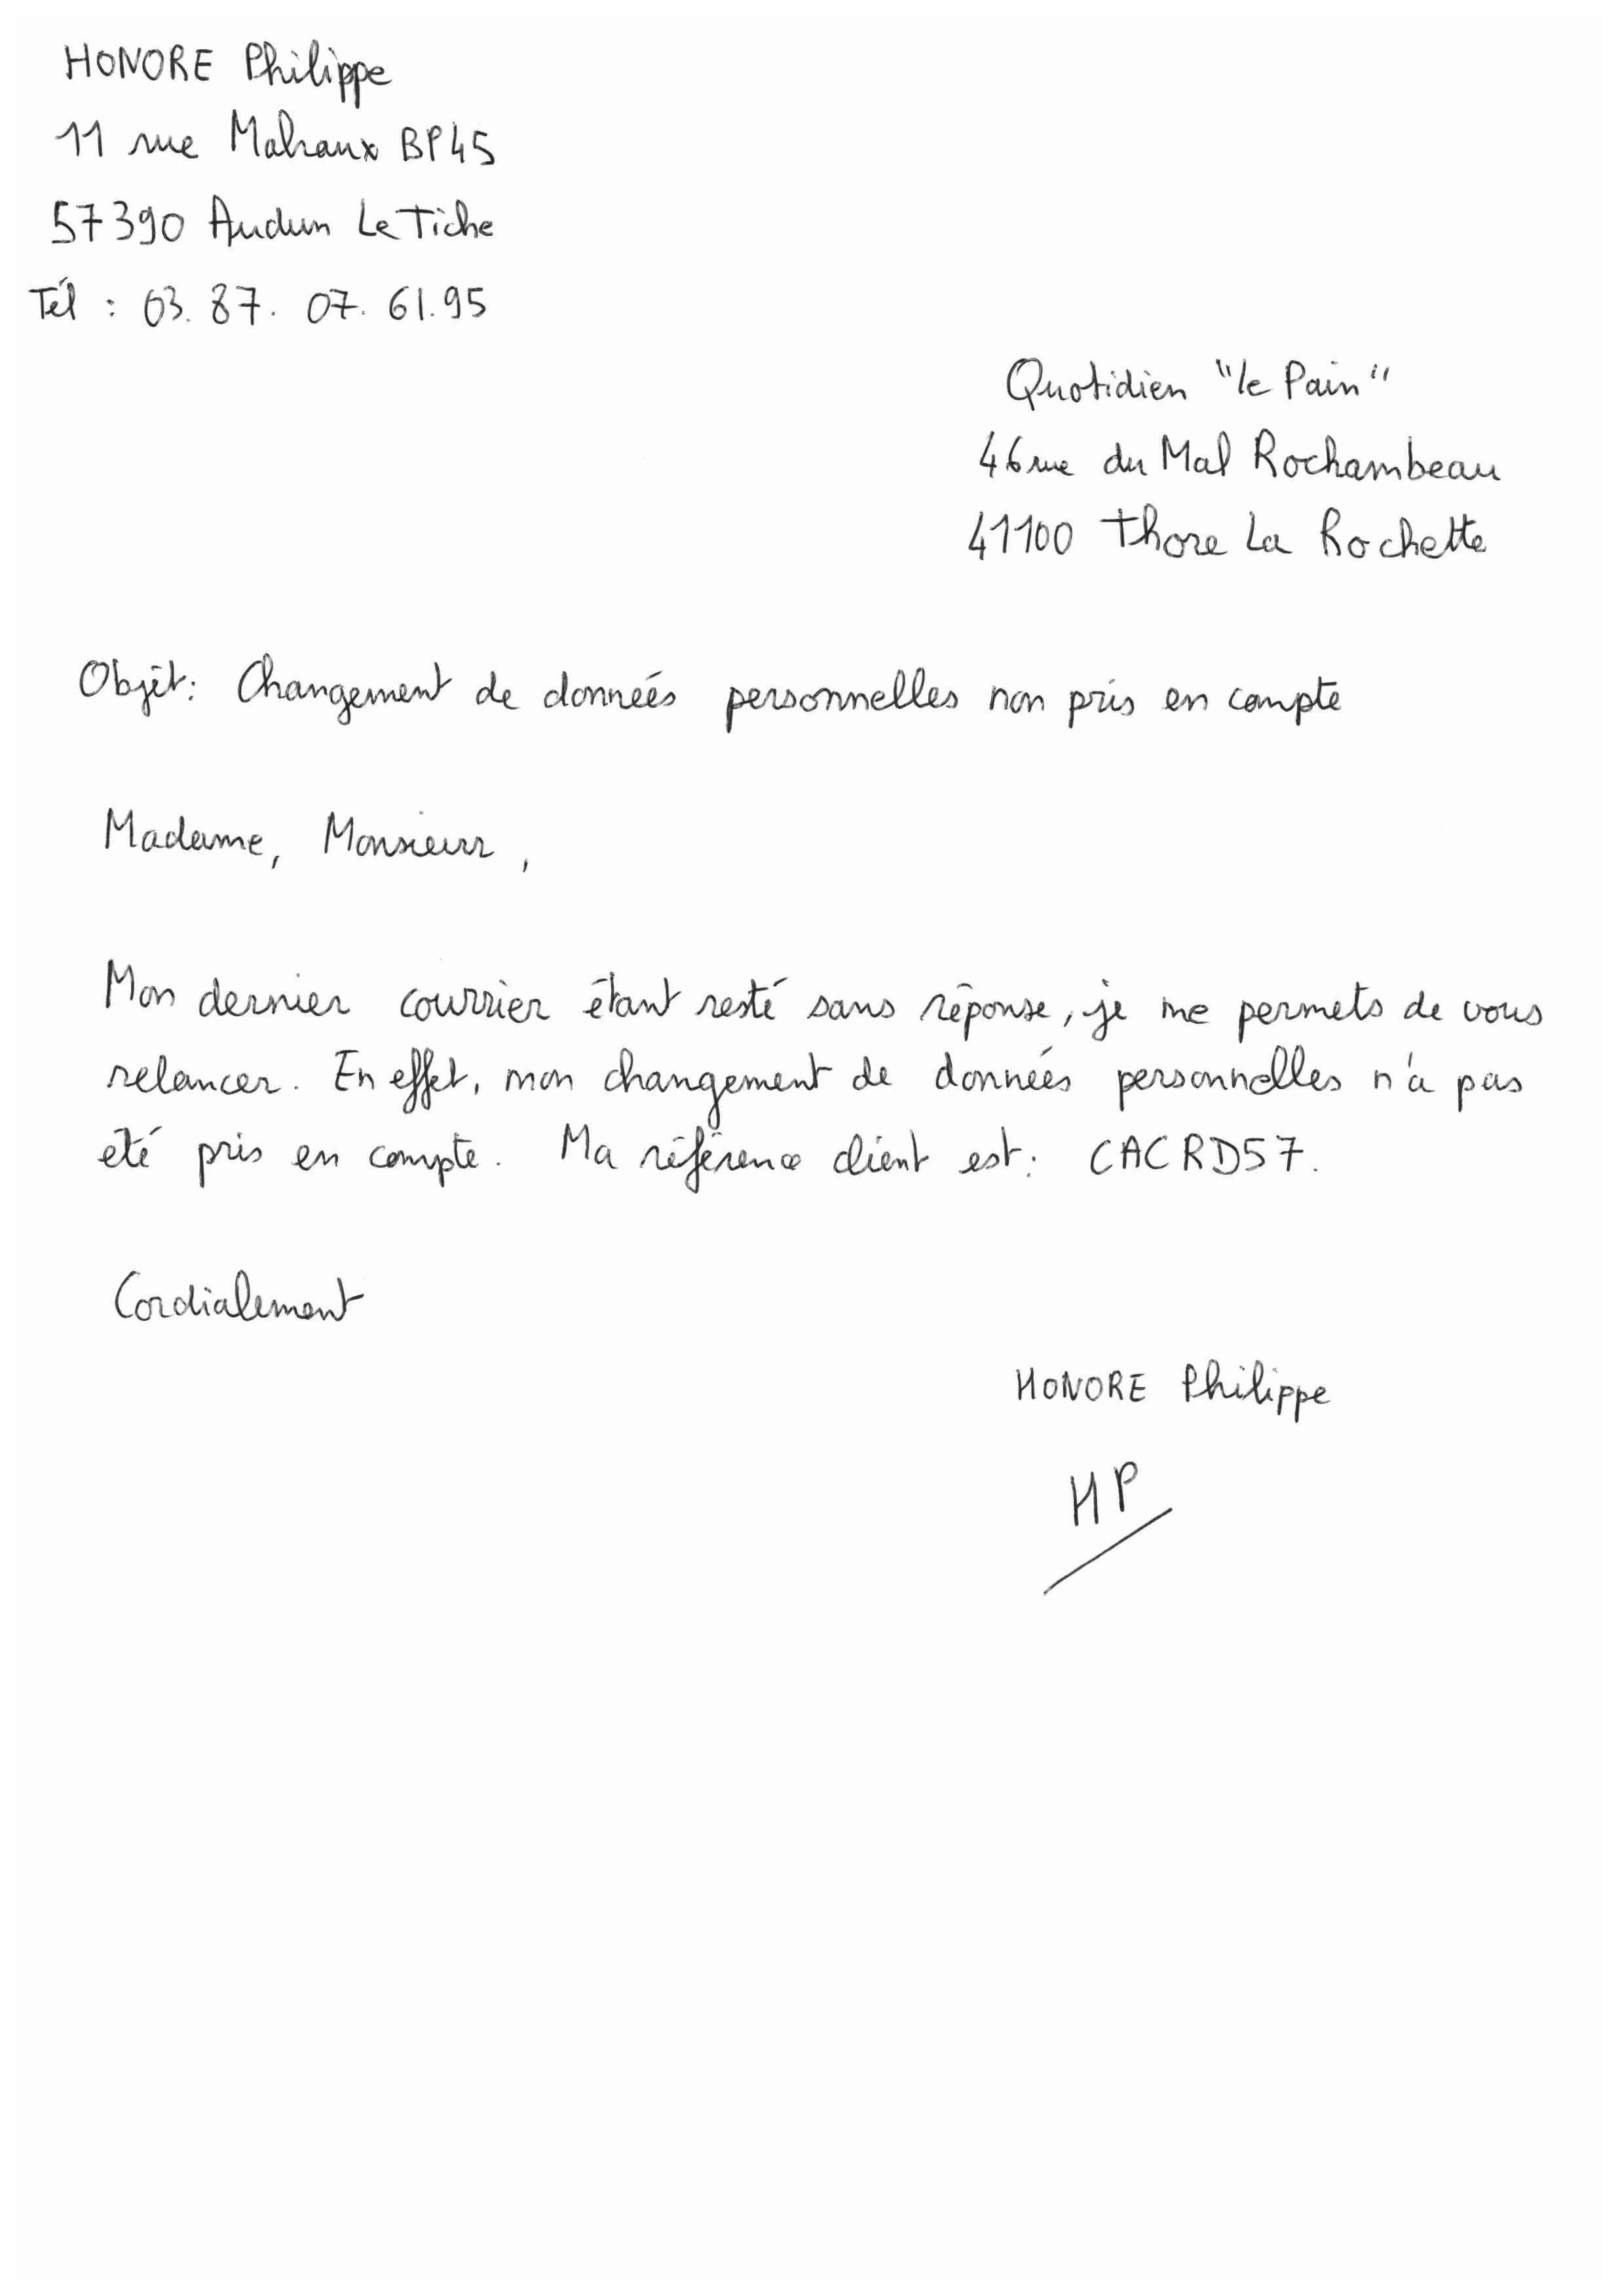 HONORE Philippe
11 rue Malraux BP45
57390 Audun Le Tiche
Tél : 03. 87. 07. 61.95
Quotidien "le Pain"
46 rue du Mal Rochambeau
41100 Thore La Rochette
Objet: Changement de données personnelles non pris en compte
Madame, Monsieur,
Mon dernier courrier étant resté sans réponse, je me permets de vous
relancer. En effet, mon changement de données personnelles n'a pas
été pris en compte. Ma référence client est: CACRD57.
Cordialement
HONORE Philippe
HP